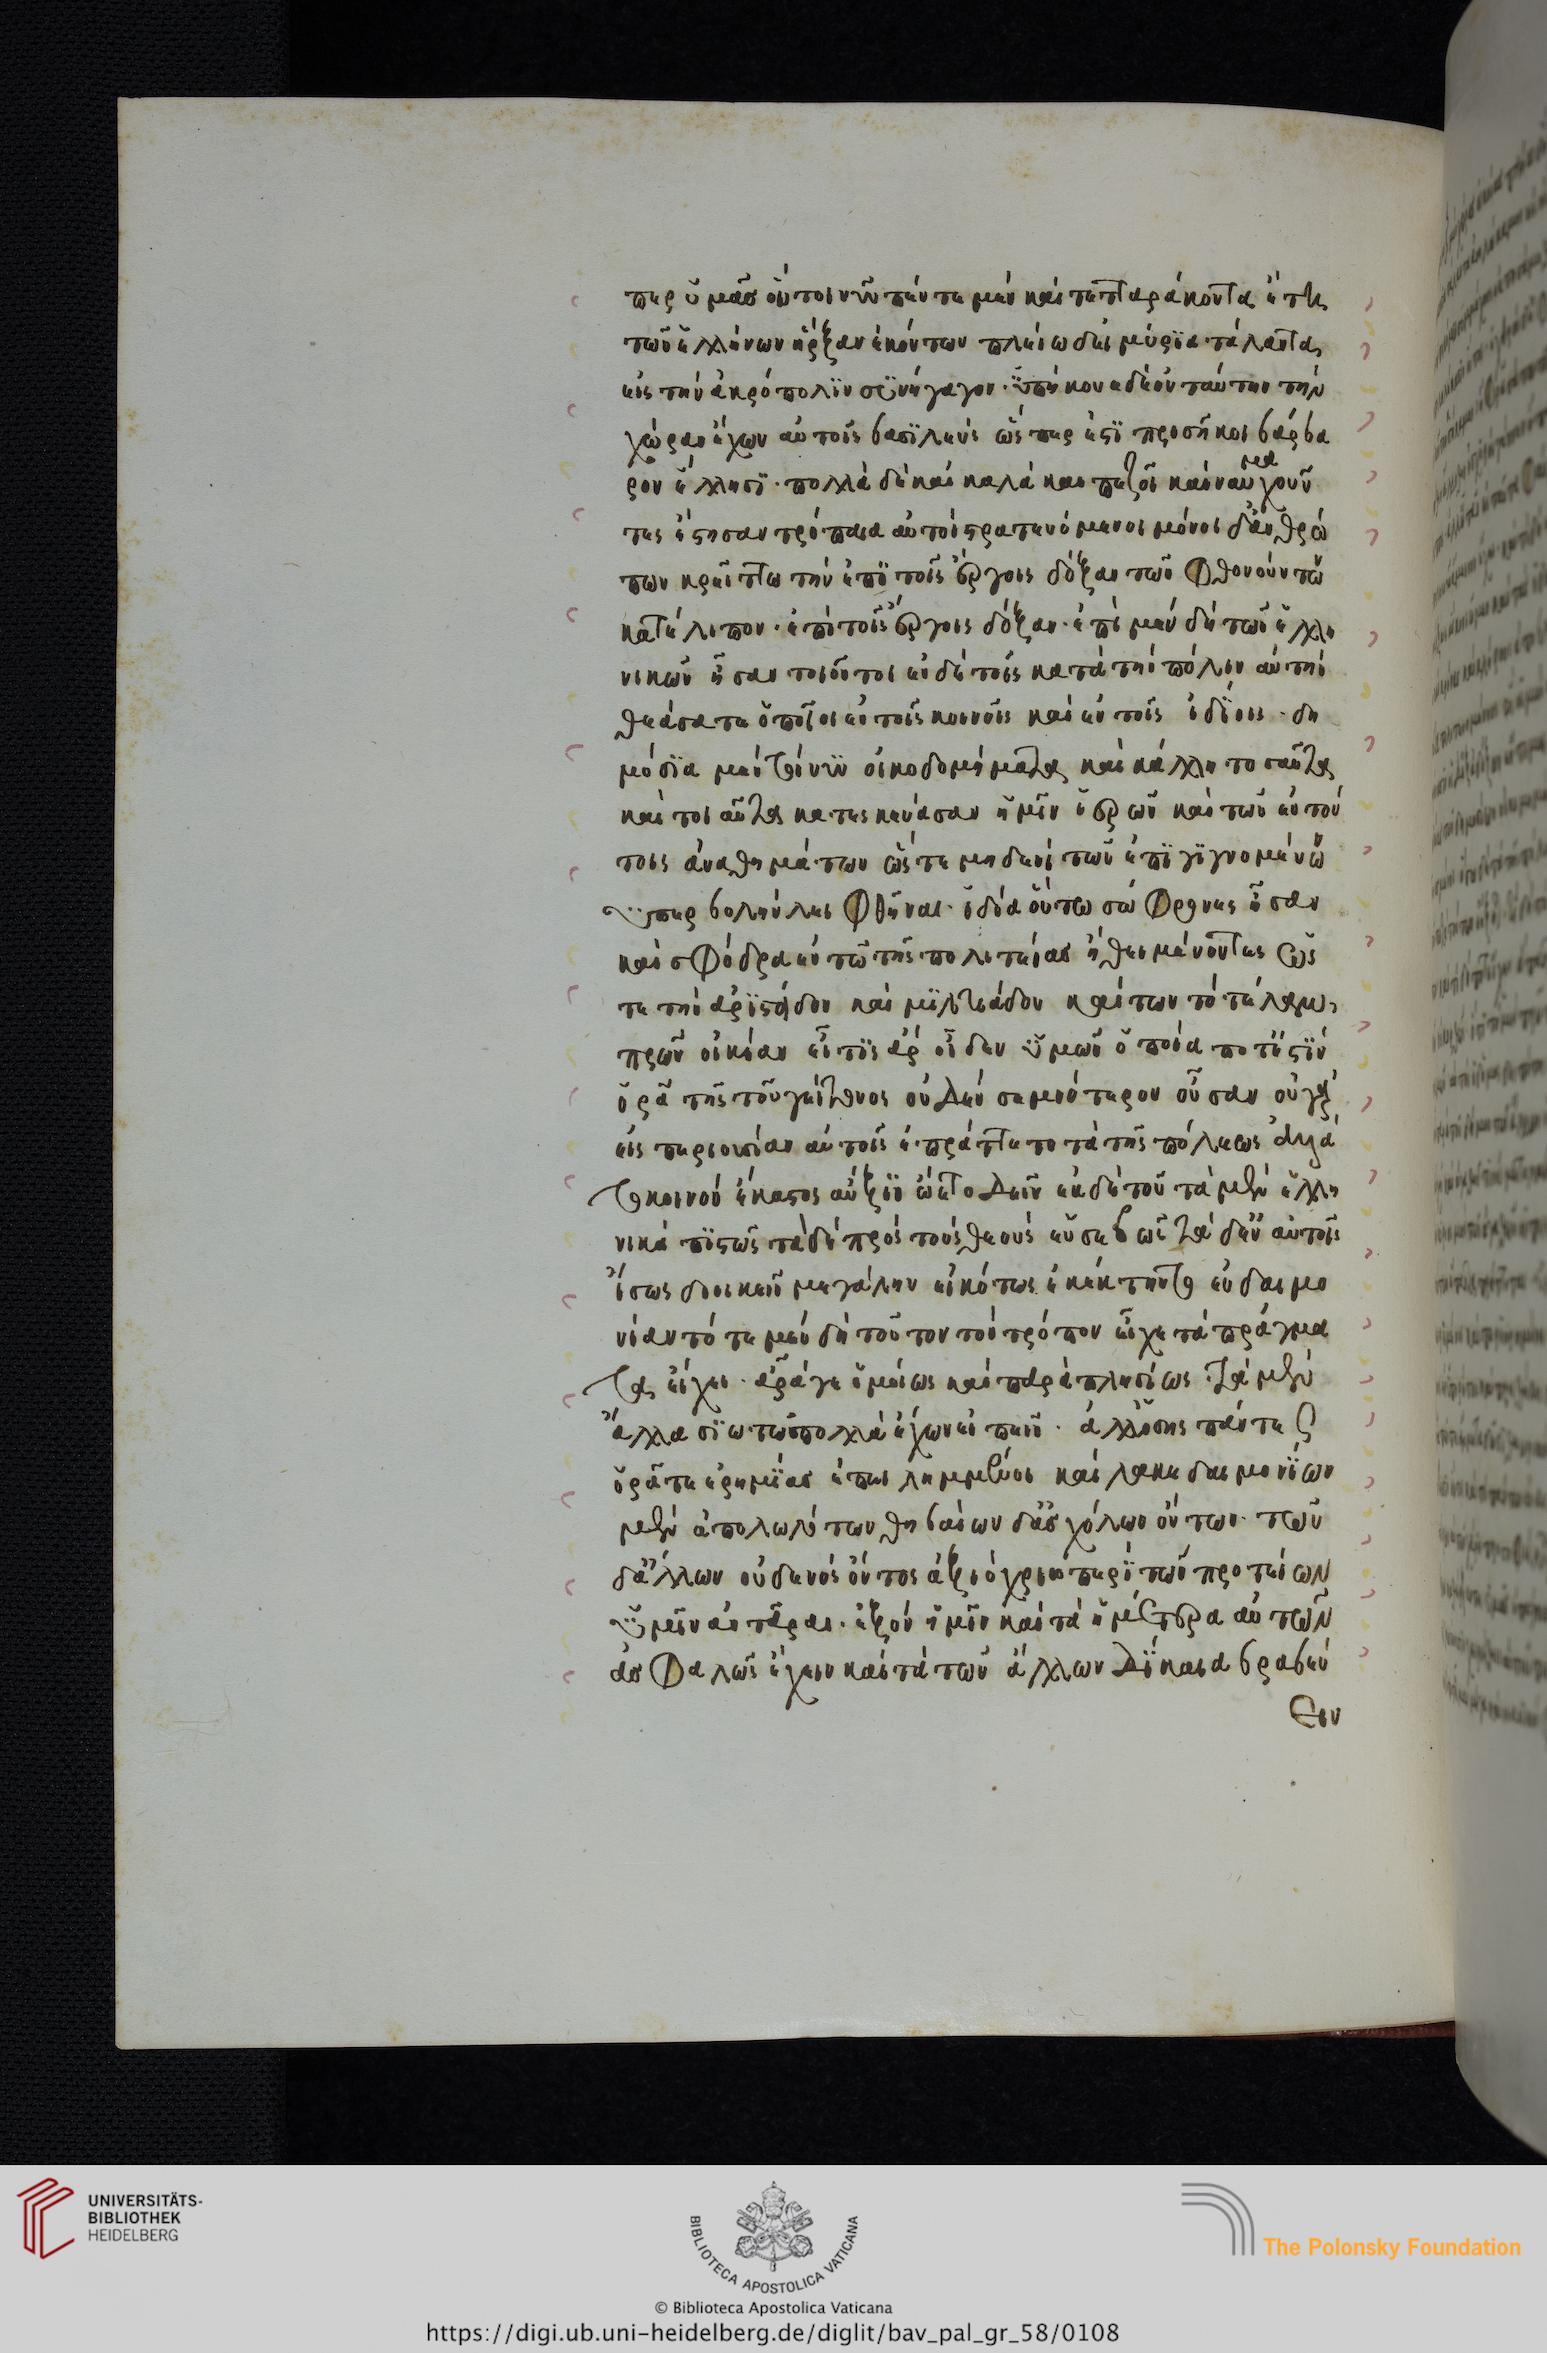 περ ὑμᾶς οὗτοι νῦν πέντε μὲν καὶ τετταράκοντα ἔτη
τῶν ἑλλήνων ἦρξαν ἑκόντων πλείω δὲ μύρϊα τάλαντα
εἰς τὴν ἀκρόπολϊν σϋνήγαγον· ϋπήκουε δὲ ὁν ταύτην τὴν
χώραν ἔχων αὐτοῖς βασϊλεὺς ὥσπερ ἐστὶ προσῆκοι βάρβα
ρον ἕλλησϊ· πολλὰ δὲ καὶ καλὰ και πεζοῖ καὶ ναυμαχοῦν
τες ἔστησαν τρόπαια αὐτοὶ στρατευόμενοι μόνοι δ' ἀνθρώ
πων κρείττω τὴν ἐπϊ τοῖς ἔργοις δόξαν τῶν φθονούντων
κατέλιπον· ἐπὶ τοῖς ἔργοις δόξαν· ἐπὶ μὲν δὴ τῶν ἑλλη
νικῶν ἦσαν τοιοῦτοι ἐν δὲ τοῖς κατὰ τὴν πόλιν αὐτὴν
θεάσατε ὁποῖοι ἐν τοῖς κοινοῖς καὶ ἐν τοῖς ἰδίοις· δη
μόσϊα μὲν τοίνϋν οἰκοδομήματα καὶ κάλλη τοσαῦτα
καὶ τοιαῦτα κατεσκεύασαν ἡμῖν ἱερῶν καὶ τῶν ἐν τού
τοις ἀναθημάτων ὥστε μηδενὶ τῶν ἐπϊγϊγνομένων
ϋπερβολὴν λει φθῆναι· ἰδία οὕτω σώφρονες ἦσαν
καὶ σφόδρα ἐν τῶ τῆς πολιτείας ἤθει μένοντες ὥσ
τε τὴν ἀρϊστείδου καὶ μϊλτιάδου καὶ των τότε λαμ
πρῶν οἰκίαν εἴ τϊς ἄρ οἶδεν ϋμῶν ὁποία ποτ' ἐστϊν
ὁρᾶ τῆς τοῦ γείτονος οὐδὲν σεμνότερον οὖσαν οὐ γὰρ
εἰς περιουσίαν αὐτοῖς ἐπράττετο τὰ τῆς πόλεως ἀλλὰ
τὸ κοινὸν ἕκαστος αὔξϊν ὤετο δεῖν ἐκ δὲ τοῦ τὰ μὲν ἑλλη
νικὰ πϊστῶς τὰ δὲ πρὸς τοὺς θεοὺς εὐσεβῶς τὰ δ' ἐν αὑτοῖς
ἴσως διοικεῖν μεγάλην εἰκότως ἐκέκτηντο εὐδαιμο
νίαν τότε μὲν δὴ τοῦτον τὸν τρόπον εἶχε τὰ πράγμα
τα ἔχει· ἆρά γε ὁμοίως καὶ παράπλησίως· τὰ μὲν
ἄλλα σϊωπῶ πολλὰ ἔχων εἰπεῖν· ἀλλ' ὅσης πάντες
ὁρᾶτε ἐρημίας ἐπειλημμένοι καὶ λακεδαιμονϊων
μὲν ἀπολωλότων θηβαίων δ' ἀσχόλων ὄντων· τῶν
δ' ἄλλων οὐδενὸς ὄντος ἀξιόχρεω περϊ τῶν πρωτείων
ϋμῖν ἀντᾶραι· ἐξὸν ἡμῖν καὶ τὰ ἡμέτερα αὐτῶν
ἀσφαλῶς ἔχειν καὶ τὰ τῶν ἄλλων δϊκαια βραβεύ
ειν
UNIVERSITÄTS-
BIBLIOTHEK
HEIDELBERG
BIBLIOTECA APOSTOLICA VATICANA
The Polonsky Foundation
© Biblioteca Apostolica Vaticana
https://digi.ub.uni-heidelberg.de/diglit/bav_pal_gr_58/0108